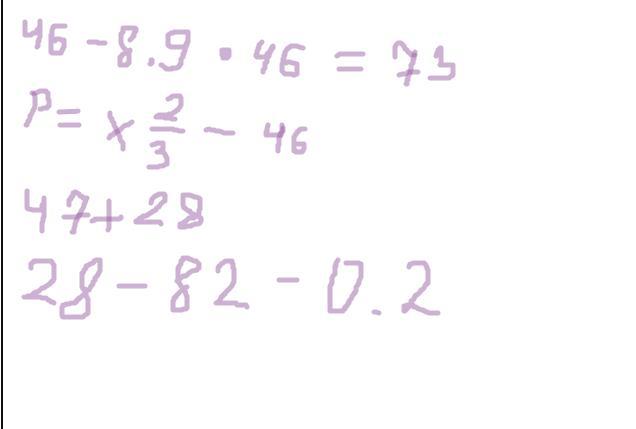 46 - 8.9 · 46 = 73
P = x 2/3 - 46
47 + 28
28 - 82 - 0.2